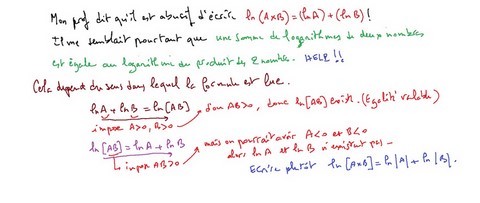 Mon prof dit qu'il est abusif d'écrire ln(A×B)=(lnA)+(lnB)!
Il me semblait pourtant que une somme de logarithmes de deux nombres
est égale au logarithme du produit des 2 nombres. HELP!!
Cela dépend du sens dans lequel la formule est lue.
lnA + lnB = ln[AB] d'où AB>0, donc ln[AB] existe. (Egalité valable)
impose A>0, B>0
ln[AB] = lnA + lnB mais on pourrait avoir A<0 et B<0
impose AB>0 alors lnA et lnB n'existent pas
Ecrire plutôt ln[A×B] = ln|A| + ln|B|.